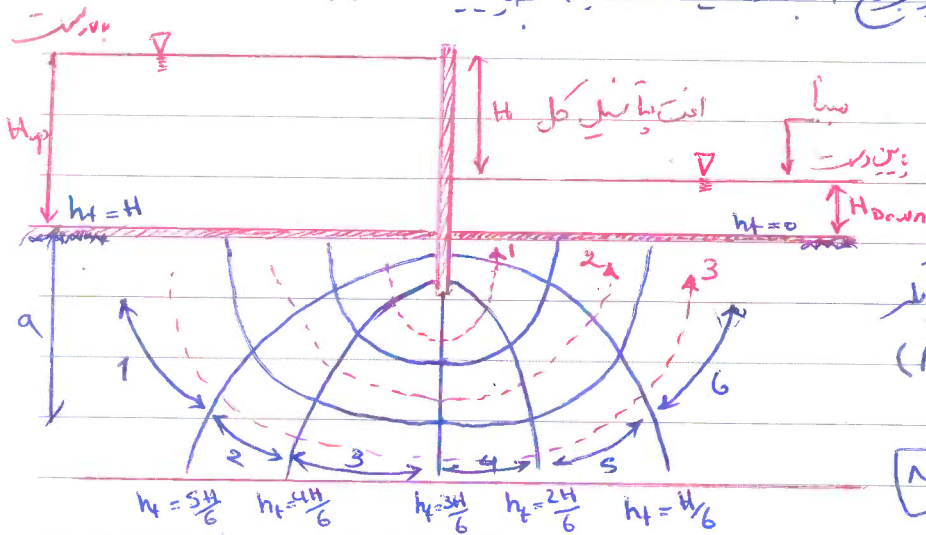 بالادست
H افت پتانسیل کل
مبنا
H up
پایین دست
H Down
ht = H
ht = 0
1
2
3
a
1
6
2
3
4
5
ht = 5H/6
ht = 4H/6
ht = 3H/6
ht = 2H/6
ht = H/6
N